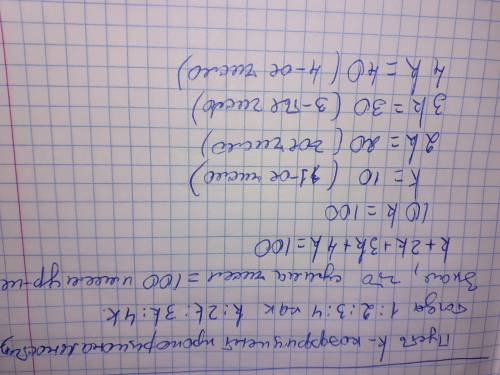 Пусть k - коэффициент пропорциональности,
тогда 1:2:3:4 как k:2k:3k:4k.
Зная, что сумма чисел = 100 имеем ур-ие
k+2k+3k+4k=100
10k=100
k=10 (1-ое число)
2k=20 (2ое число)
3k=30 (3-ье число)
4k=40 (4-ое число)